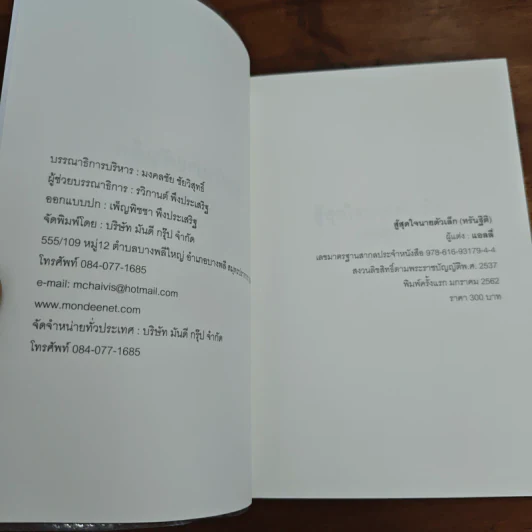 บรรณาธิการบริหาร : มงคลชัย ชัยวิสุทธิ์
ผู้ช่วยบรรณาธิการ : รวิกานต์ พึ่งประเสริฐ
ออกแบบปก : เพ็ญพิชชา พึ่งประเสริฐ
จัดพิมพ์โดย : บริษัท มันดี กรุ๊ป จำกัด
555/109 หมู่12 ตำบลบางพลีใหญ่ อำเภอบางพลี
โทรศัพท์ 084-077-1685
e-mail: mchaivis@hotmail.com
www.mondeenet.com
จัดจำหน่ายทั่วประเทศ : บริษัท มันดี กรุ๊ป จำกัด
โทรศัพท์ 084-077-1685
สู้สุดใจนายตัวเล็ก (หรันฐิติ)
ผู้แต่ง : แอลลี่
เลขมาตรฐานสากลประจำหนังสือ 978-616-93179-4-4
สงวนลิขสิทธิ์ตามพระราชบัญญัติพ.ศ. 2537
พิมพ์ครั้งแรก มกราคม 2562
ราคา 300 บาท